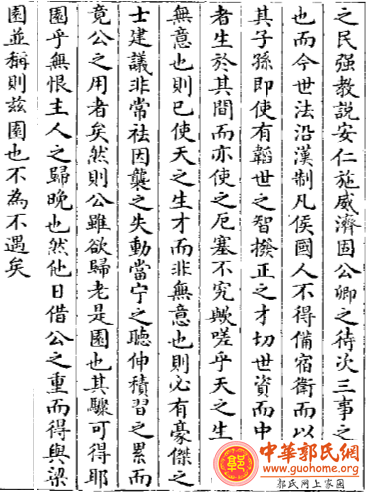 之民强教説安仁施威濟因公卿之待次三事之
也而今世法沿漢制凡侯國人不得備宿衛而以
其子孫即使有韜世之智撥正之才切世資而中
者生於其間而亦使之厄塞不究歟嗟乎天之生
無意也則已使天之生才而非無意也則必有豪傑之
士建議非常祛因襲之失動當宁之聽伸積習之累而
竟公之用者矣然則公雖欲歸老是園也其驟可得耶
園乎無恨主人之歸晚也然他日借公之重而得與梁
園並稱則兹園也不為不遇矣
中華郭氏網
www.guohome.org
郭氏网上家园